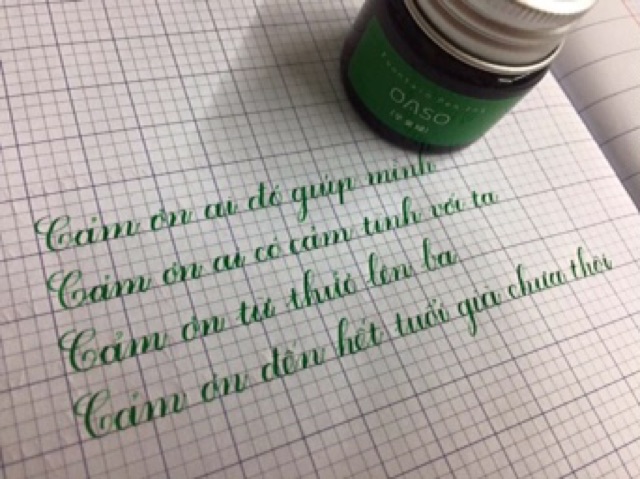 Fountain Pen Ink
OASO
Cảm ơn ai đó giúp mình
Cảm ơn ai có cảm tình với ta
Cảm ơn từ thuở lên ba
Cảm ơn đến hết tuổi già chưa thôi